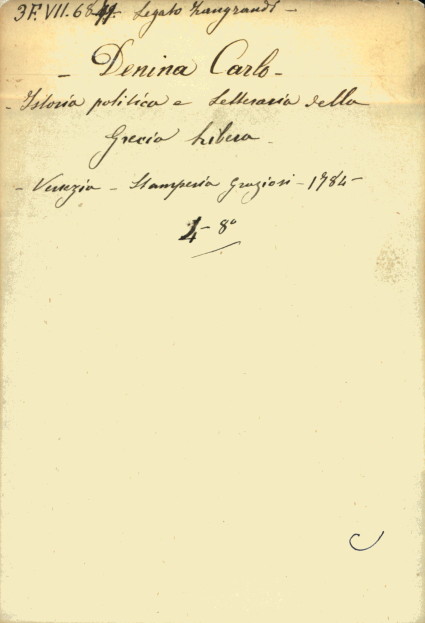 3F. VII. 68 Legato Zangrandi -
- Denina Carlo -
- Istoria politica e letteraria della
Grecia libera -
- Venezia - Stamperia Graziosi - 1784 -
4 - 8°